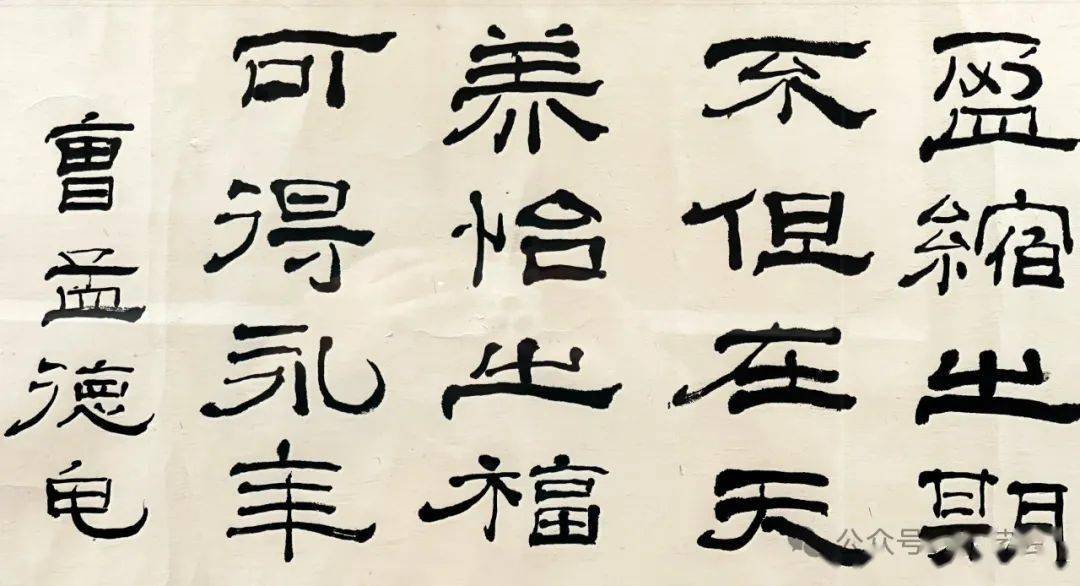 盈縮之期
不但在天
养怡之福
可得永年
曹孟德龟
公众号